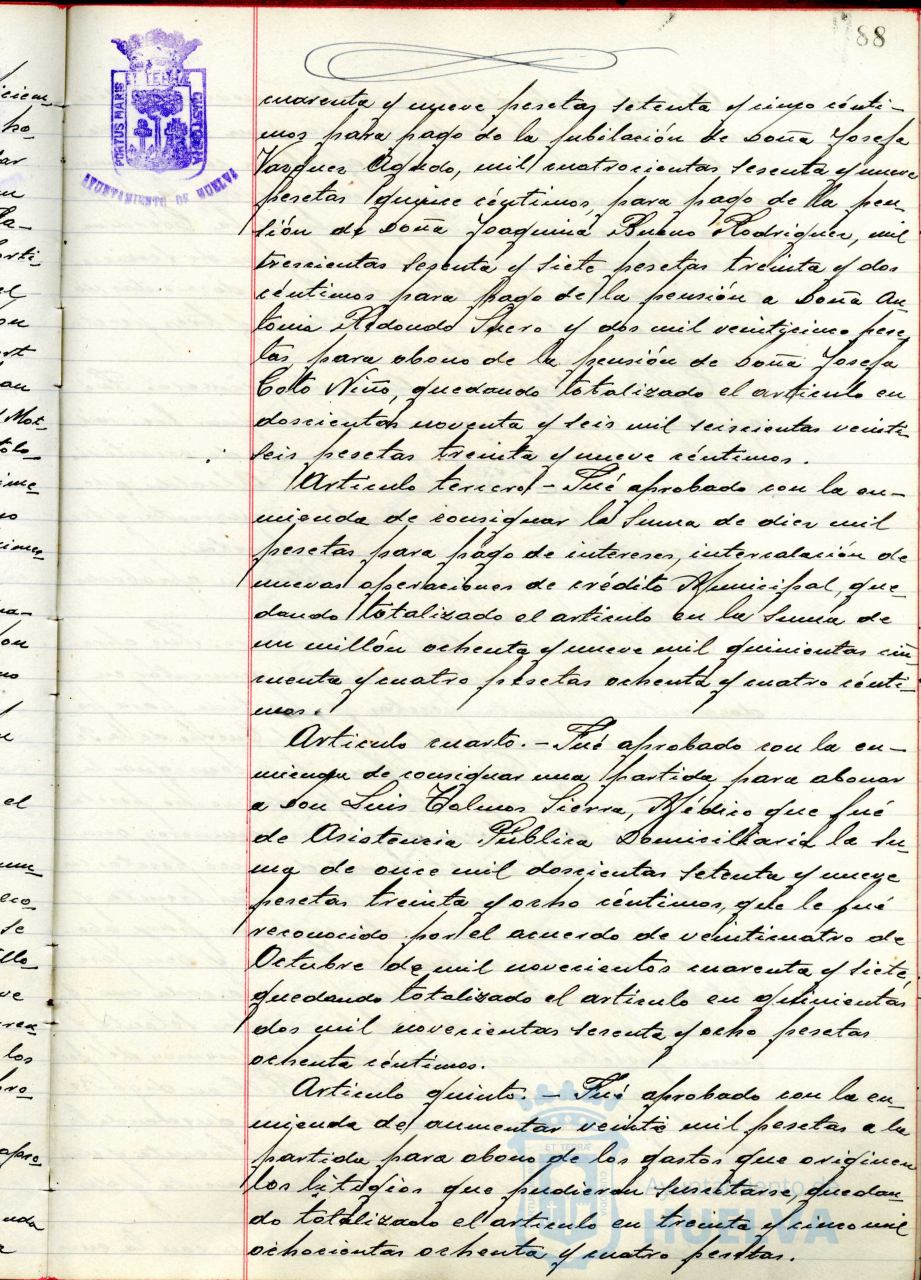 88
ET TERRÆ
PORTUS MARIS
CUSTODIA
AYUNTAMIENTO DE HUELVA
cuarenta y nueve pesetas setenta y cinco cénti-
mos para pago de la jubilación de Doña Josefa
Vazquez Aguedo, mil cuatrocientas sesenta y nueve
pesetas quince céntimos, para pago de la pen-
sión de Doña Joaquina Bueno Rodriguez, mil
trescientas sesenta y siete pesetas treinta y dos
céntimos para pago de la pensión a Doña An-
tonia Redondo Suero y dos mil veinticinco pese-
tas para abono de la pensión de Doña Josefa
Coto Niño, quedando totalizado el artículo en
doscientas noventa y seis mil seiscientas veinti-
seis pesetas treinta y nueve céntimos.
Articulo tercero - Fué aprobado con la en-
mienda de consignar la suma de diez mil
pesetas para pago de intereses, intercalación de
nuevas operaciones de crédito Municipal, que-
dando totalizado el articulo en la suma de
un millón ochenta y nueve mil quinientas cin-
cuenta y cuatro pesetas ochenta y cuatro cénti-
mos.
Articulo cuarto. - Fué aprobado con la en-
mienda de consignar una partida para abonar
a Don Luis Tolmos Sierra, Médico que fué
de Asistencia Pública Domiciliaria la su-
ma de once mil doscientas setenta y nueve
pesetas treinta y ocho céntimos, que le fué
reconocido por el acuerdo de veinticuatro de
Octubre de mil novecientos cuarenta y siete,
quedando totalizado el articulo en quinientas
dos mil novecientas sesenta y ocho pesetas
ochenta céntimos.
Articulo quinto. - Fué aprobado con la en-
mienda de aumentar veinte mil pesetas a la
partida para abono de los gastos que originen
los litigios que pudieran suscitarse, quedan-
do totalizado el articulo en treinta y cinco mil
ochocientas ochenta y cuatro pesetas.
Ayuntamiento de
HUELVA